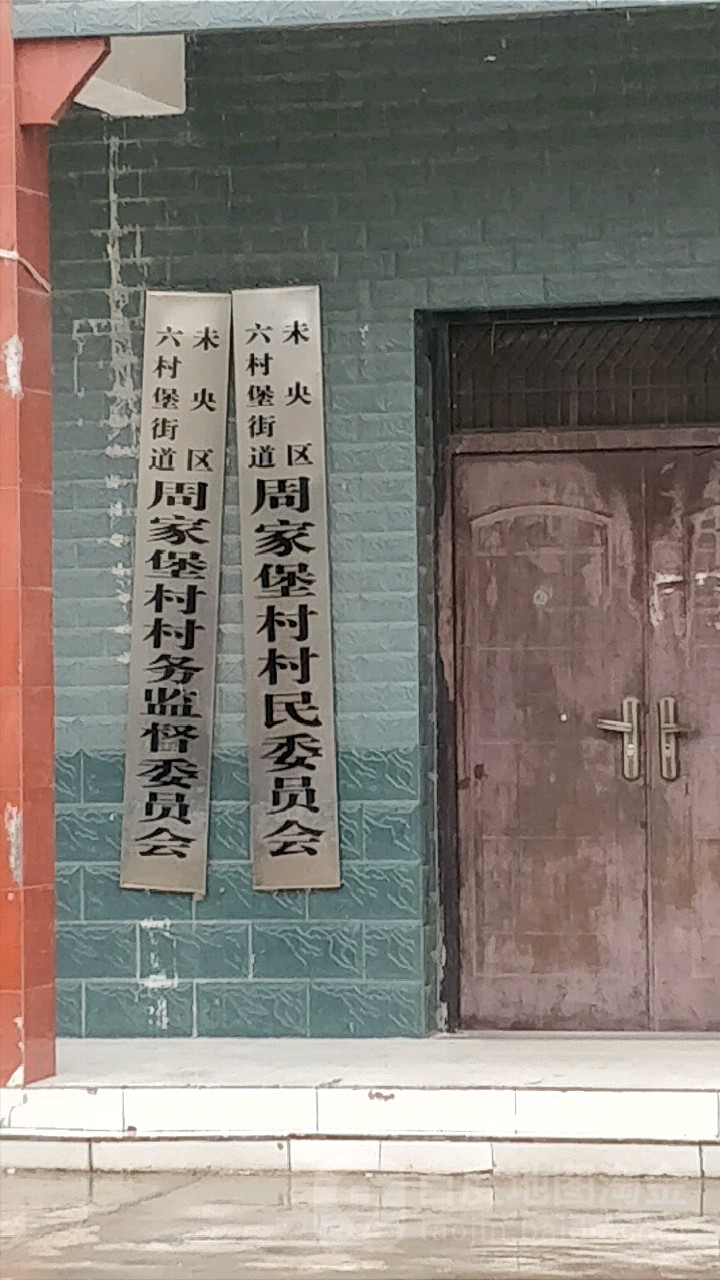 未央区
六村堡街道
周家堡村村民委员会
未央区
六村堡街道
周家堡村村务监督委员会
百度地图淘金
taojin.baidu.com